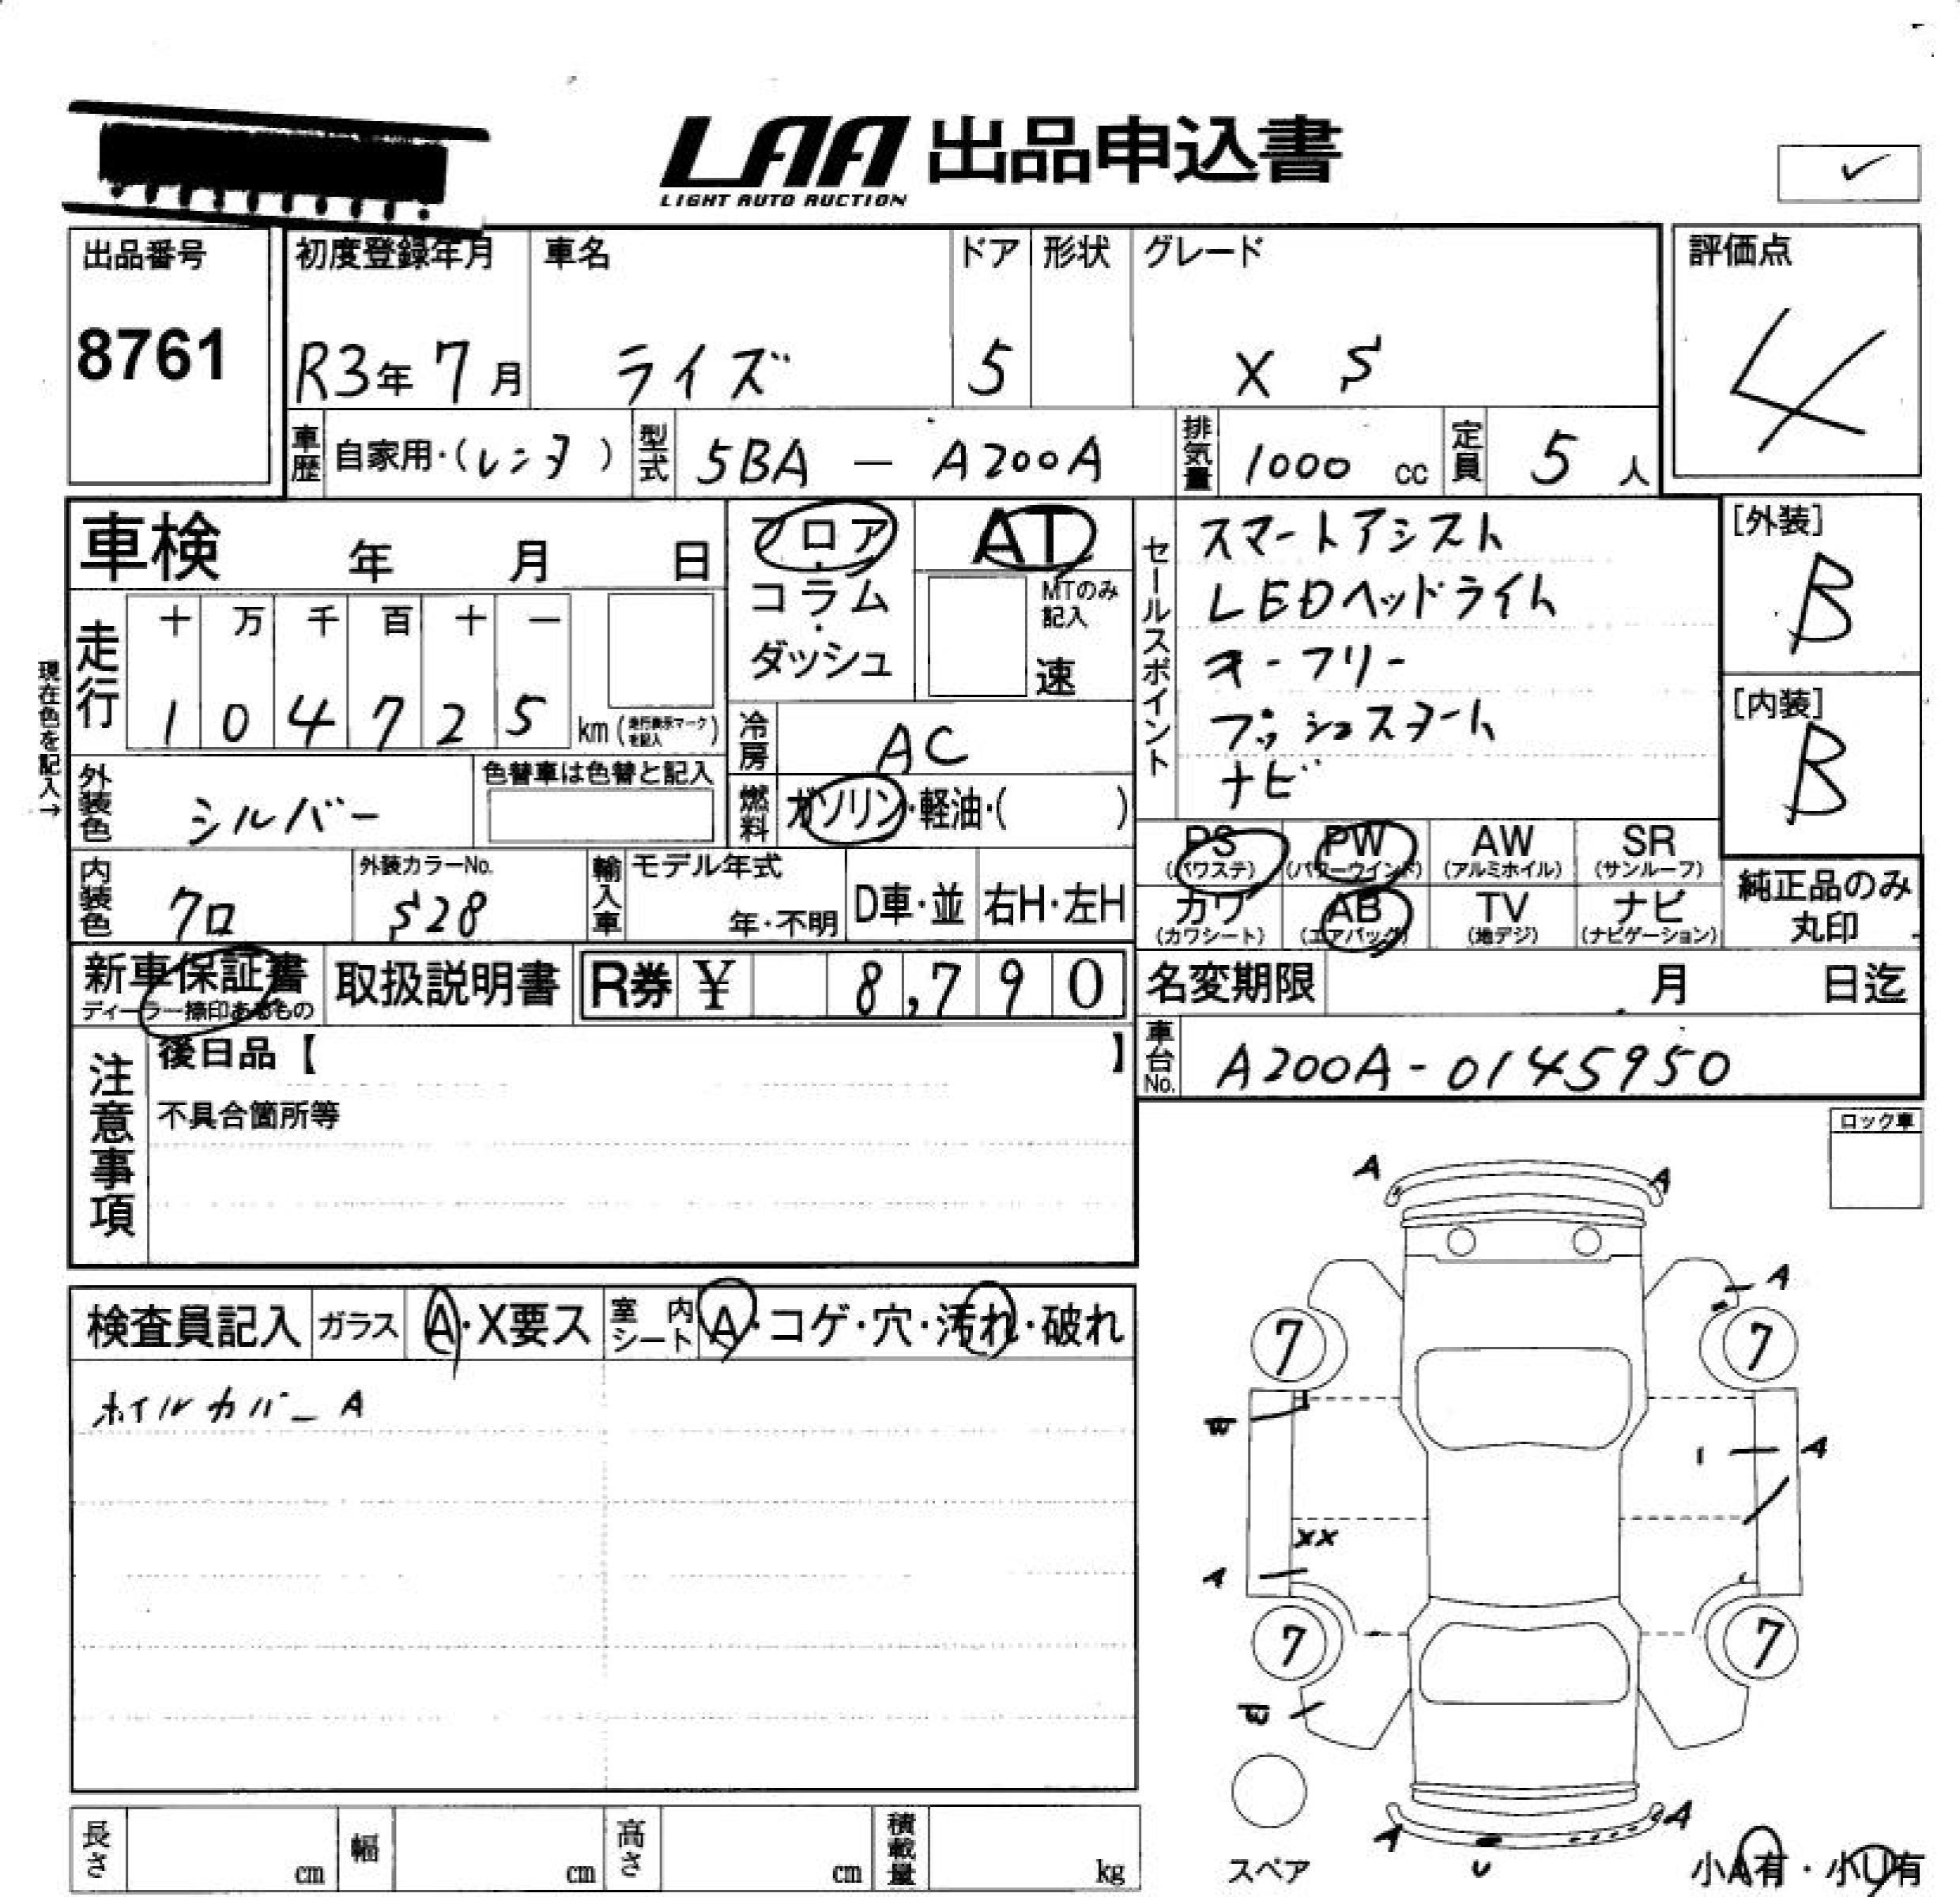 LAA 出品申込書
LIGHT AUTO AUCTION
出品番号
8761
初度登録年月
R3年 7月
車名
ライズ
ドア
5
形状
グレード
X S
評価点
4
車歴 自家用・(レンタ)
型式 5BA - A200A
排気量 1000 cc
定員 5 人
車検 年 月 日
フロア・コラム・ダッシュ
AT
MTのみ記入
速
セールスポイント
スマートアシスト
LEDヘッドライト
キーフリー
プッシュスタート
ナビ
[外装]
B
[内装]
B
現在色を記入→
走行
十 万 千 百 十 一
1 0 4 7 2 5 km (走行表示マークを記入)
冷房 AC
外装色 シルバー
色替車は色替と記入
燃料 ガソリン・軽油・( )
内装色 クロ
外装カラーNo.
S28
輸入車 モデル年式
年・不明
D車・並
右H・左H
PS (パワステ)
PW (パワーウインド)
AW (アルミホイル)
SR (サンルーフ)
カワ (カワシート)
AB (エアバッグ)
TV (地デジ)
ナビ (ナビゲーション)
純正品のみ丸印
新車保証書
ディーラー捺印あるもの
取扱説明書
R券 ¥ 8,790
名変期限 月 日迄
車台No. A200A-0145950
注意事項
後日品【 】
不具合箇所等
ロック車
検査員記入
ガラス A・X要ス
室内シート A・コゲ・穴・汚れ・破れ
ホイルカバー A
A A
A
7 7
W
A
XX
A
7 7
A A
U
スペア
小A有・小U有
長さ cm
幅 cm
高さ cm
積載量 kg